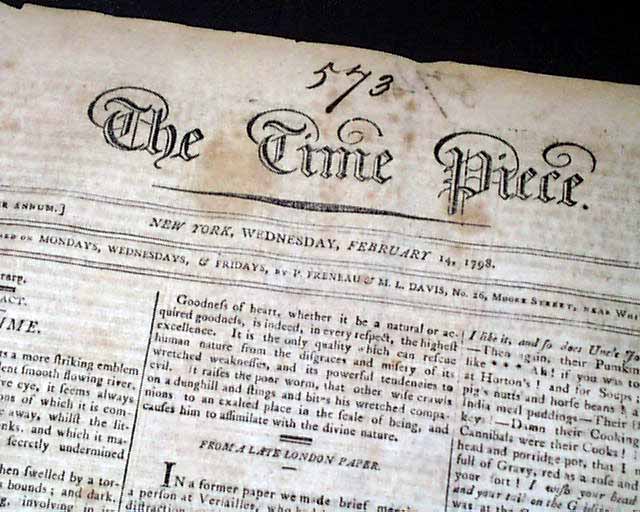 573
The Time Piece.
ER ANNUM.]
NEW YORK, WEDNESDAY, FEBRUARY 14, 1798.
ON MONDAYS, WEDNESDAYS, & FRIDAYS, BY P. FRENEAU & M. L. DAVIS, No. 26, MOORE STREET, NEAR
ACT.
IME.
ts a more ſtriking emblem
ent smooth flowing river,
ve eye, it seems always
ons of which it is com-
e away, whilſt the lit-
nks, and which it ma-
ſecretly undermined
hen swelled by a tor-
s bounds; and dark,
ng, involving in
Goodneſs of heart, whether it be a natural or ac-
quired goodneſs, is indeed, in every reſpect, the higheſt
excellence. It is the only quality which can reſcue
human nature from the diſgraces and miſery of its
wretched weakneſſes, and its powerful tendencies to
evil. It raiſes the poor worm, that other wiſe crawls
on a dunghill and ſtings and bites his wretched compa-
nions to an exalted place in the ſcale of being, and
cauſes him to aſſimilate with the divine nature.
FROM A LATE LONDON PAPER.
IN a former paper we made brief
a person at Verſailles, who
I like it, and ſo does
—Then again, their Pumkin
like **** Ah! if you was
at Horton's! and for Soups
pig's nutts and horſe beans
india meal puddings—Their
key!—Damn their Cooking
Cannibals were their Cooks!
head and porridge-pot, that I
full of Gravy, red as a roſe and
your ſort! I wiſh your head
and your tail on the
was at the